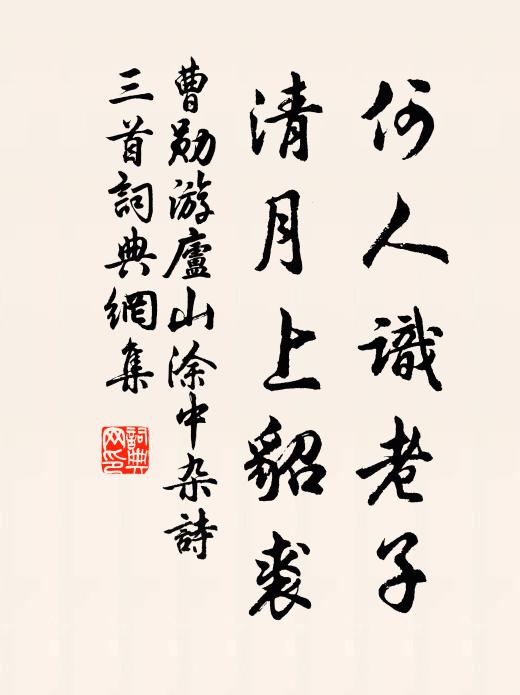 何人識老子
清月上貂裘
曹勛游廬山涂中杂詩
三首詞典網集
詞典
网印